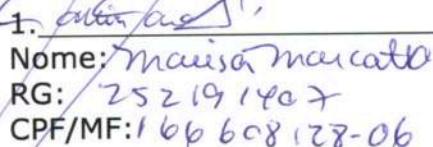 1.
Nome: Marisa Marcatto
RG: 252191407
CPF/MF: 166608128-06